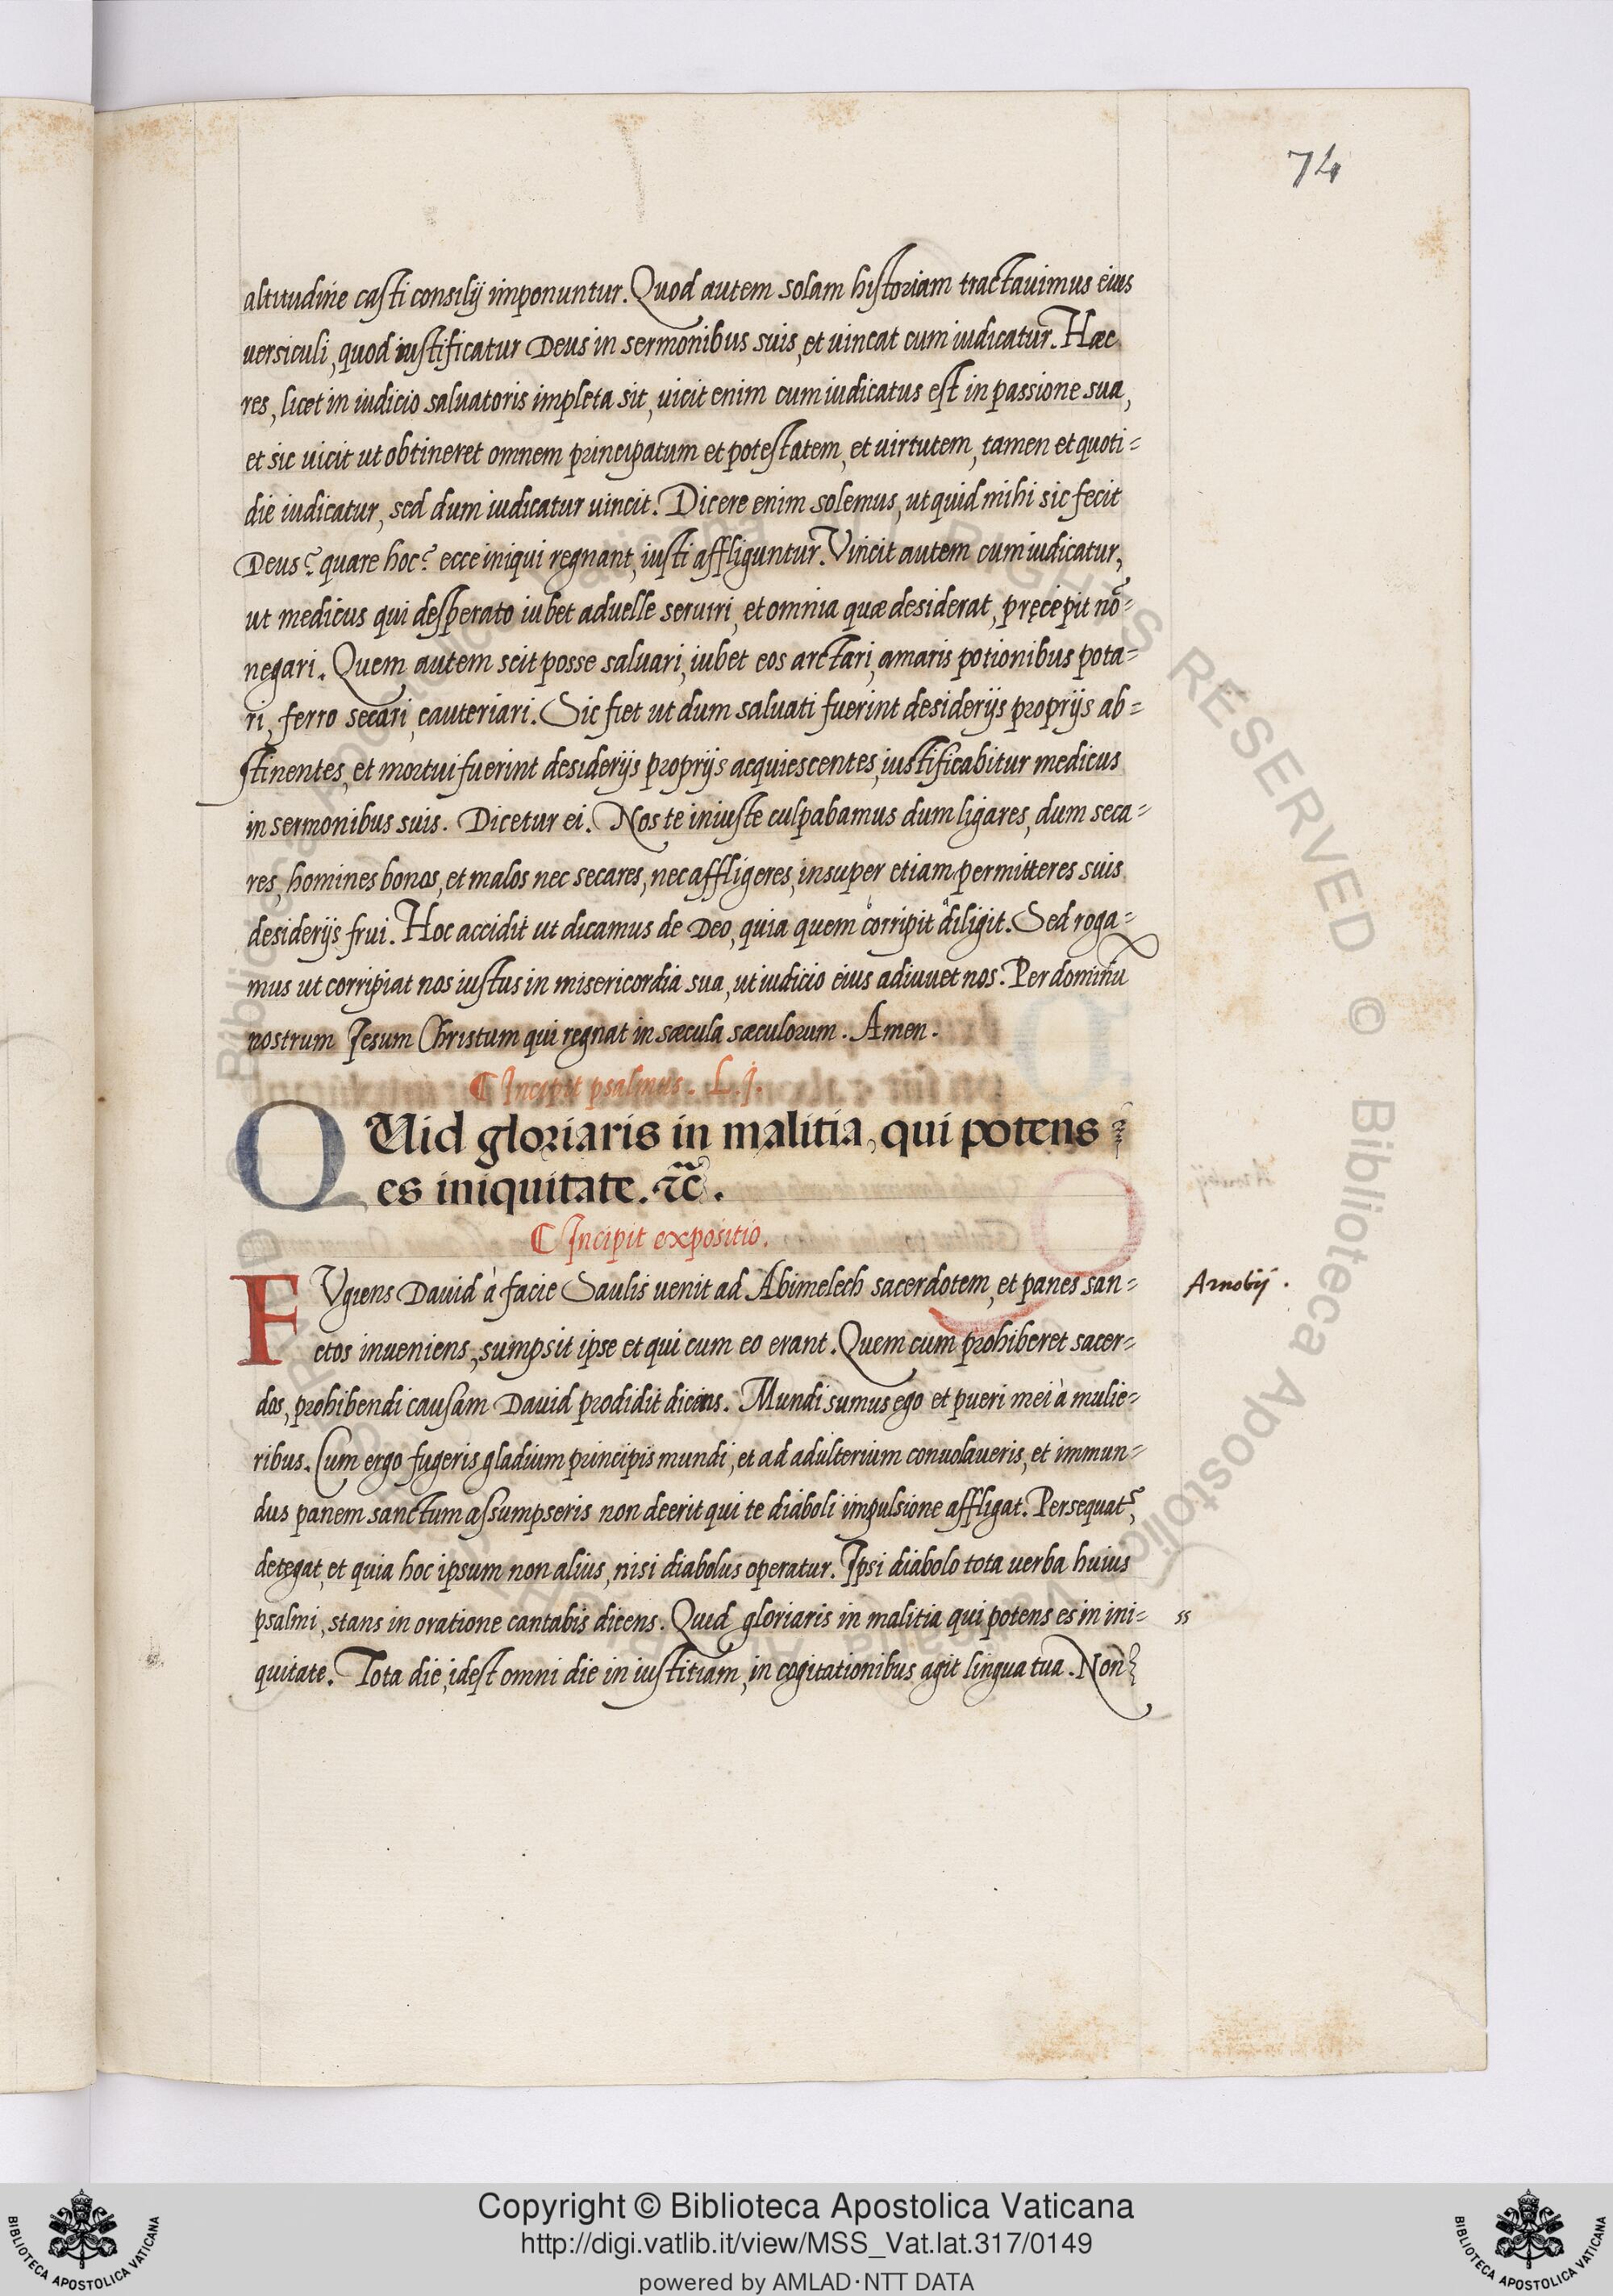 74
altitudine casti consilij imponuntur. Quod autem solam historiam tractauimus eius
uersiculi, quod iustificatur Deus in sermonibus suis, et uincat cum iudicatur. Hæc
res, licet in iudicio saluatoris impleta sit, uicit enim cum iudicatus est in passione sua,
et sic uicit ut obtineret omnem principatum et potestatem, et uirtutem, tamen et quoti=
die iudicatur, sed dum iudicatur uincit. Dicere enim solemus, ut quid mihi sic fecit
Deus? quare hoc? ecce iniqui regnant, iusti affliguntur. Vincit autem cum iudicatur,
ut medicus qui desperato iubet aduelle seruiri, et omnia quæ desiderat, pręcepit nō=
negari. Quem autem scit posse saluari, iubet eos arctari, amaris potionibus pota=
ri, ferro secari, cauteriari. Sic fiet ut dum saluati fuerint desiderijs proprijs ab=
stinentes, et mortui fuerint desiderijs proprijs acquiescentes, iustificabitur medicus
in sermonibus suis. Dicetur ei. Nos te iniuste culpabamus dum ligares, dum seca=
res, homines bonos, et malos nec secares, nec affligeres, insuper etiam permitteres suis
desiderijs frui. Hoc accidit ut dicamus de Deo, quia quem corripit diligit. Sed roga=
mus ut corripiat nos iustus in misericordia sua, ut iudicio eius adiuuet nos. Per dominū
nostrum Jesum Christum qui regnat in sæcula sæculorum. Amen.
¶ Incipit psalmus. L.j.
QUid gloriaris in malitia, qui potens
es iniquitate. ⁊c̃.
¶ Incipit expositio.
FVgiens Dauid à facie Saulis uenit ad Abimelech sacerdotem, et panes san=
Arnobij.
ctos inueniens, sumpsit ipse et qui cum eo erant. Quem cum prohiberet sacer=
dos, prohibendi causam Dauid prodidit dicens. Mundi sumus ego et pueri mei à mulie=
ribus. Cum ergo fugeris gladium principis mundi, et ad adulterium conuolaueris, et immun=
dus panem sanctum assumpseris non deerit qui te diaboli impulsione affligat. Persequat᷑,
detegat, et quia hoc ipsum non alius, nisi diabolus operatur. Ipsi diabolo tota uerba huius
psalmi, stans in oratione cantabis dicens. Quid gloriaris in malitia qui potens es in ini=
ss
quitate. Tota die, idest omni die in iustitiam, in cogitationibus agit lingua tua. Non
Copyright © Biblioteca Apostolica Vaticana
http://digi.vatlib.it/view/MSS_Vat.lat.317/0149
powered by AMLAD·NTT DATA
BIBLIOTECA APOSTOLICA VATICANA
BIBLIOTECA APOSTOLICA VATICANA